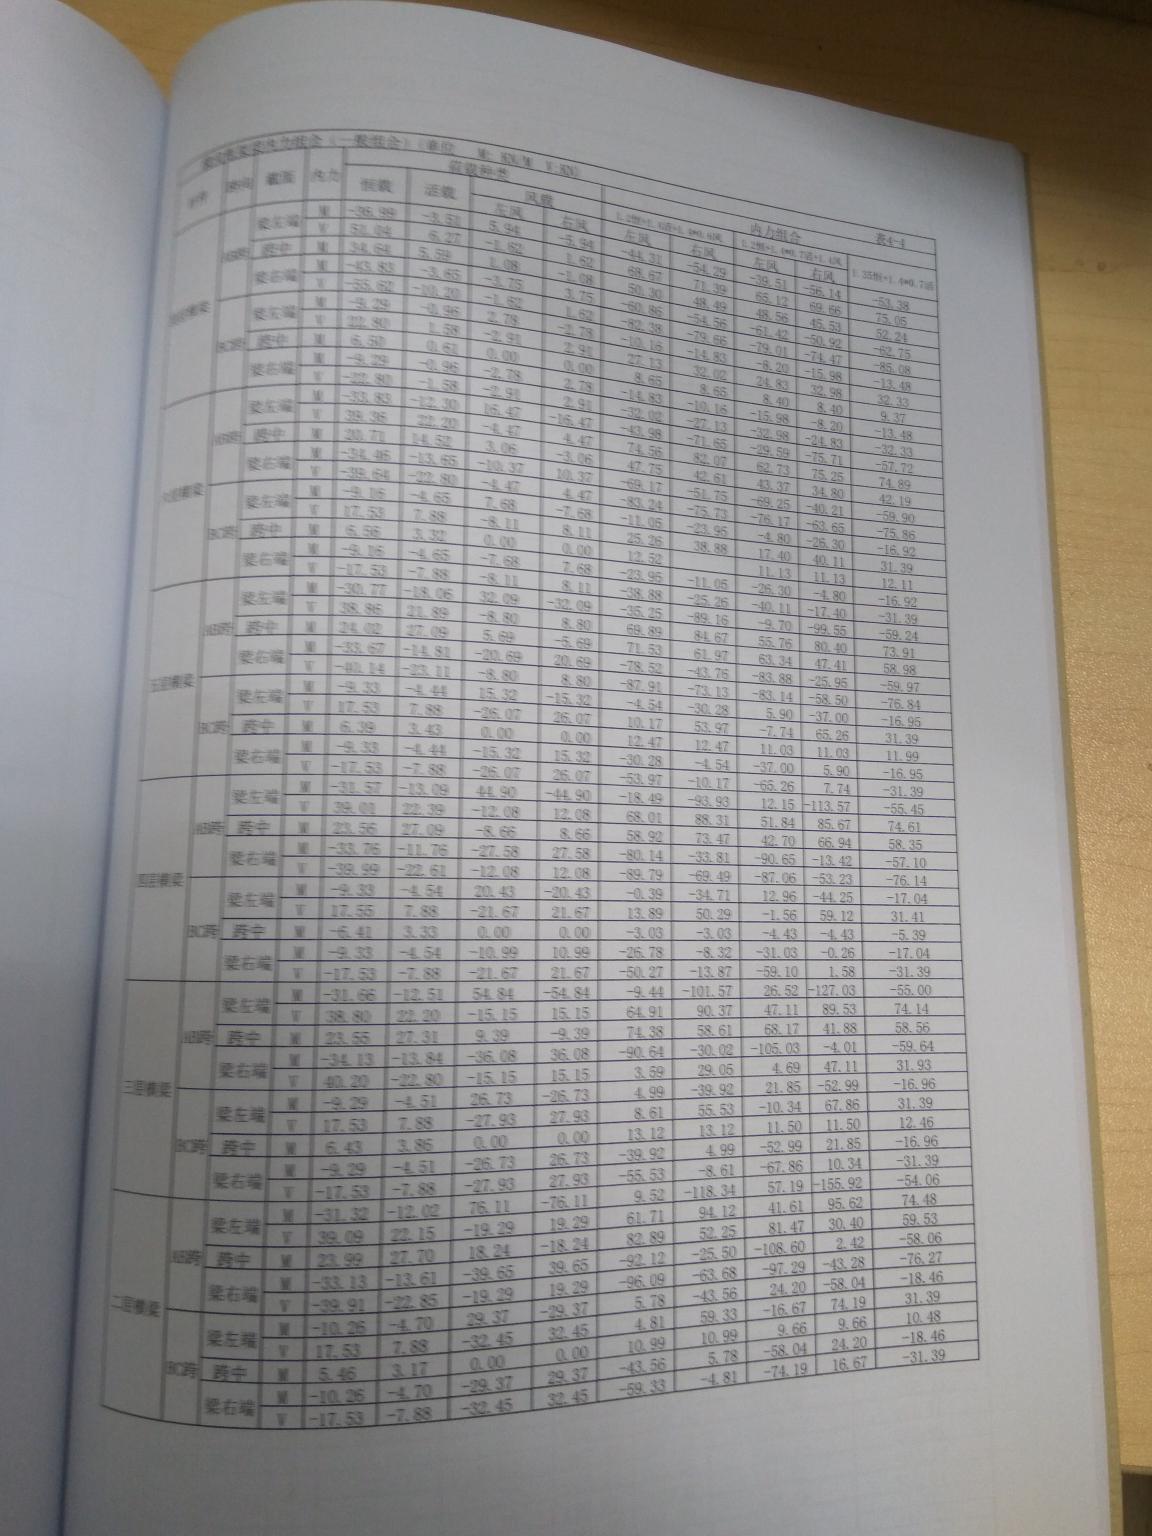 内力组合（一般组合）（单位 M: KN/M V:KN） 表4-4
截面 内力 荷载种类 内力组合
恒载 活载 风载 1.2恒+1.4活+1.4*0.6风 1.2恒+1.4*0.7活+1.4风 1.35恒+1.4*0.7活
左风 右风 左风 右风 左风 右风
AB跨 梁左端 M -36.99 -3.51 5.94 -5.94 -44.31 -54.29 -39.51 -56.14 -53.38
V 51.04 6.27 -1.62 1.62 68.67 71.39 65.12 69.66 75.05
跨中 M 34.64 5.59 1.08 -1.08 50.30 48.49 48.56 45.53 52.24
梁右端 M -43.83 -3.65 -3.75 3.75 -60.86 -54.56 -61.42 -50.92 -62.75
V -55.62 -10.20 -1.62 1.62 -82.38 -79.66 -79.01 -74.47 -85.08
BC跨 梁左端 M -9.29 -0.96 2.78 -2.78 -10.16 -14.83 -8.20 -15.98 -13.48
V 22.80 1.58 -2.91 2.91 27.13 32.02 24.83 32.98 32.33
跨中 M 6.50 0.61 0.00 0.00 8.65 8.65 8.40 8.40 9.37
梁右端 M -9.29 -0.96 -2.78 2.78 -14.83 -10.16 -15.98 -8.20 -13.48
V -22.80 -1.58 -2.91 2.91 -32.02 -27.13 -32.98 -24.83 -32.33
六层横梁 AB跨 梁左端 M -33.83 -12.30 16.47 -16.47 -43.98 -71.65 -29.59 -75.71 -57.72
V 39.36 22.20 -4.47 4.47 74.56 82.07 62.73 75.25 74.89
跨中 M 20.71 14.52 3.06 -3.06 47.75 42.61 43.37 34.80 42.19
梁右端 M -34.46 -13.65 -10.37 10.37 -69.17 -51.75 -69.25 -40.21 -59.90
V -39.64 -22.80 -4.47 4.47 -83.24 -75.73 -76.17 -63.65 -75.86
BC跨 梁左端 M -9.16 -4.65 7.68 -7.68 -11.05 -23.95 -4.80 -26.30 -16.92
V 17.53 7.88 -8.11 8.11 25.26 38.88 17.40 40.11 31.39
跨中 M 6.56 3.32 0.00 0.00 12.52 11.13 11.13 12.11
梁右端 M -9.16 -4.65 -7.68 7.68 -23.95 -11.05 -26.30 -4.80 -16.92
V -17.53 -7.88 -8.11 8.11 -38.88 -25.26 -40.11 -17.40 -31.39
五层横梁 AB跨 梁左端 M -30.77 -18.06 32.09 -32.09 -35.25 -89.16 -9.70 -99.55 -59.24
V 38.86 21.89 -8.80 8.80 69.89 84.67 55.76 80.40 73.91
跨中 M 24.02 27.09 5.69 -5.69 71.53 61.97 63.34 47.41 58.98
梁右端 M -33.67 -14.81 -20.69 20.69 -78.52 -43.76 -83.88 -25.95 -59.97
V -40.14 -23.11 -8.80 8.80 -87.91 -73.13 -83.14 -58.50 -76.84
BC跨 梁左端 M -9.33 -4.44 15.32 -15.32 -4.54 -30.28 5.90 -37.00 -16.95
V 17.53 7.88 -26.07 26.07 10.17 53.97 -7.74 65.26 31.39
跨中 M 6.39 3.43 0.00 0.00 12.47 12.47 11.03 11.03 11.99
梁右端 M -9.33 -4.44 -15.32 15.32 -30.28 -4.54 -37.00 5.90 -16.95
V -17.53 -7.88 -26.07 26.07 -53.97 -10.17 -65.26 7.74 -31.39
四层横梁 AB跨 梁左端 M -31.57 -13.09 44.90 -44.90 -18.49 -93.93 12.15 -113.57 -55.45
V 39.01 22.39 -12.08 12.08 68.01 88.31 51.84 85.67 74.61
跨中 M 23.56 27.09 -8.66 8.66 58.92 73.47 42.70 66.94 58.35
梁右端 M -33.76 -11.76 -27.58 27.58 -80.14 -33.81 -90.65 -13.42 -57.10
V -39.99 -22.61 -12.08 12.08 -89.79 -69.49 -87.06 -53.23 -76.14
BC跨 梁左端 M -9.33 -4.54 20.43 -20.43 -0.39 -34.71 12.96 -44.25 -17.04
V 17.55 7.88 -21.67 21.67 13.89 50.29 -1.56 59.12 31.41
跨中 M -6.41 3.33 0.00 0.00 -3.03 -3.03 -4.43 -4.43 -5.39
梁右端 M -9.33 -4.54 -10.99 10.99 -26.78 -8.32 -31.03 -0.26 -17.04
V -17.53 -7.88 -21.67 21.67 -50.27 -13.87 -59.10 1.58 -31.39
三层横梁 AB跨 梁左端 M -31.66 -12.51 54.84 -54.84 -9.44 -101.57 26.52 -127.03 -55.00
V 38.80 22.20 -15.15 15.15 64.91 90.37 47.11 89.53 74.14
跨中 M 23.55 27.31 9.39 -9.39 74.38 58.61 68.17 41.88 58.56
梁右端 M -34.13 -13.84 -36.08 36.08 -90.64 -30.02 -105.03 -4.01 -59.64
V 40.20 -22.80 -15.15 15.15 3.59 29.05 4.69 47.11 31.93
BC跨 梁左端 M -9.29 -4.51 26.73 -26.73 4.99 -39.92 21.85 -52.99 -16.96
V 17.53 7.88 -27.93 27.93 8.61 55.53 -10.34 67.86 31.39
跨中 M 6.43 3.86 0.00 0.00 13.12 13.12 11.50 11.50 12.46
梁右端 M -9.29 -4.51 -26.73 26.73 -39.92 4.99 -52.99 21.85 -16.96
V -17.53 -7.88 -27.93 27.93 -55.53 -8.61 -67.86 10.34 -31.39
二层横梁 AB跨 梁左端 M -31.32 -12.02 76.11 -76.11 9.52 -118.34 57.19 -155.92 -54.06
V 39.09 22.15 -19.29 19.29 61.71 94.12 41.61 95.62 74.48
跨中 M 23.99 27.70 18.24 -18.24 82.89 52.25 81.47 30.40 59.53
梁右端 M -33.13 -13.61 -39.65 39.65 -92.12 -25.50 -108.60 2.42 -58.06
V -39.91 -22.85 -19.29 19.29 -96.09 -63.68 -97.29 -43.28 -76.27
BC跨 梁左端 M -10.26 -4.70 29.37 -29.37 5.78 -43.56 24.20 -58.04 -18.46
V 17.53 7.88 -32.45 32.45 4.81 59.33 -16.67 74.19 31.39
跨中 M 5.46 3.17 0.00 0.00 10.99 10.99 9.66 9.66 10.48
梁右端 M -10.26 -4.70 -29.37 29.37 -43.56 5.78 -58.04 24.20 -18.46
V -17.53 -7.88 -32.45 32.45 -59.33 -4.81 -74.19 16.67 -31.39